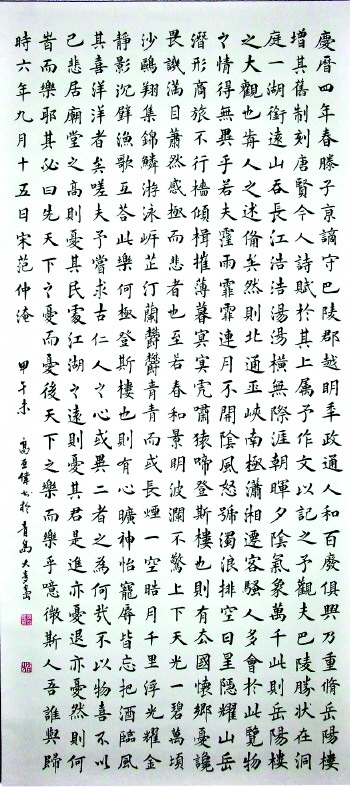 慶曆四年春滕子京謫守巴陵郡越明年政通人和百廢俱興乃重脩岳陽樓
增其舊制刻唐賢今人詩賦於其上属予作文以記之予觀夫巴陵勝狀在洞
庭一湖銜遠山吞長江浩浩湯湯橫無際涯朝暉夕陰氣象萬千此則岳陽樓
之大觀也前人之述備矣然則北通巫峽南極瀟湘遷客騷人多會於此覽物
之情得無異乎若夫霪雨霏霏連月不開陰風怒號濁浪排空日星隱耀山岳
潛形商旅不行檣傾楫摧薄暮冥冥虎嘯猿啼登斯樓也則有去國懷鄉憂讒
畏譏滿目蕭然感極而悲者也至若春和景明波瀾不驚上下天光一碧萬頃
沙鷗翔集錦鱗游泳岸芷汀蘭鬱鬱青青而或長煙一空皓月千里浮光耀金
靜影沉璧漁歌互荅此樂何極登斯樓也則有心曠神怡寵辱皆忘把酒臨風
其喜洋洋者矣嗟夫予嘗求古仁人之心或異二者之為何哉不以物喜不以
己悲居廟堂之高則憂其民處江湖之遠則憂其君是進亦憂退亦憂然則何
時而樂耶其必曰先天下之憂而憂後天下之樂而樂乎噫微斯人吾誰與歸
時六年九月十五日宋范仲淹 甲午末